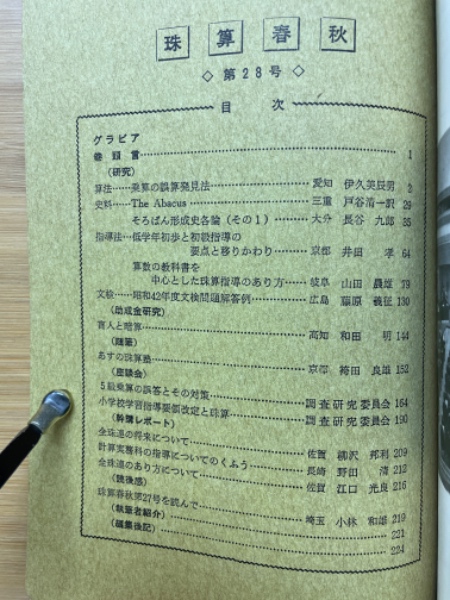 珠算春秋
◇ 第28号 ◇
目次
グラビア
巻頭言 1
(研究)
算法……乗算の誤算発見法 愛知 伊久美辰男 2
史料……The Abacus 三重 戸谷清一訳 29
そろばん形成史各論(その1) 大分 長谷九郎 35
指導法…低学年初歩と初級指導の
要点と移りかわり 京都 井田 孝 64
算数の教科書を
中心とした珠算指導のあり方 岐阜 山田 晨雄 79
文検……昭和42年度文検問題解答例 広島 藤原 義征 130
(助成金研究)
盲人と暗算 高知 和田 明 144
(随筆)
あすの珠算塾 京都 袴田 良雄 152
(座談会)
5級乗算の誤答とその対策 調査研究委員会 164
小学校学習指導要領改定と珠算 調査研究委員会 190
(幹部レポート)
全珠連の将来について 佐賀 柳沢 邦利 209
計算実務科の指導についてのくふう 長崎 野田 清 212
全珠連のあり方について 佐賀 江口 光良 216
(読後感)
珠算春秋第27号を読んで 埼玉 小林 和雄 219
(執筆者紹介) 221
(編集後記) 224